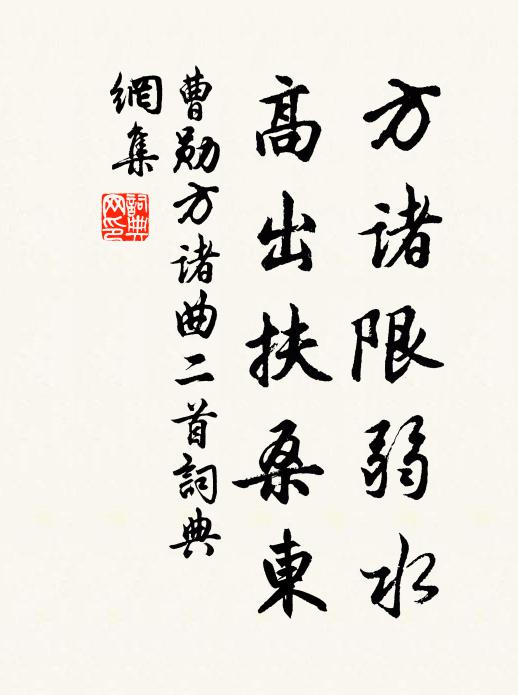 方诸限弱水
高出扶桑東
曹勋方诸曲二首詞典
網集
詞典网印